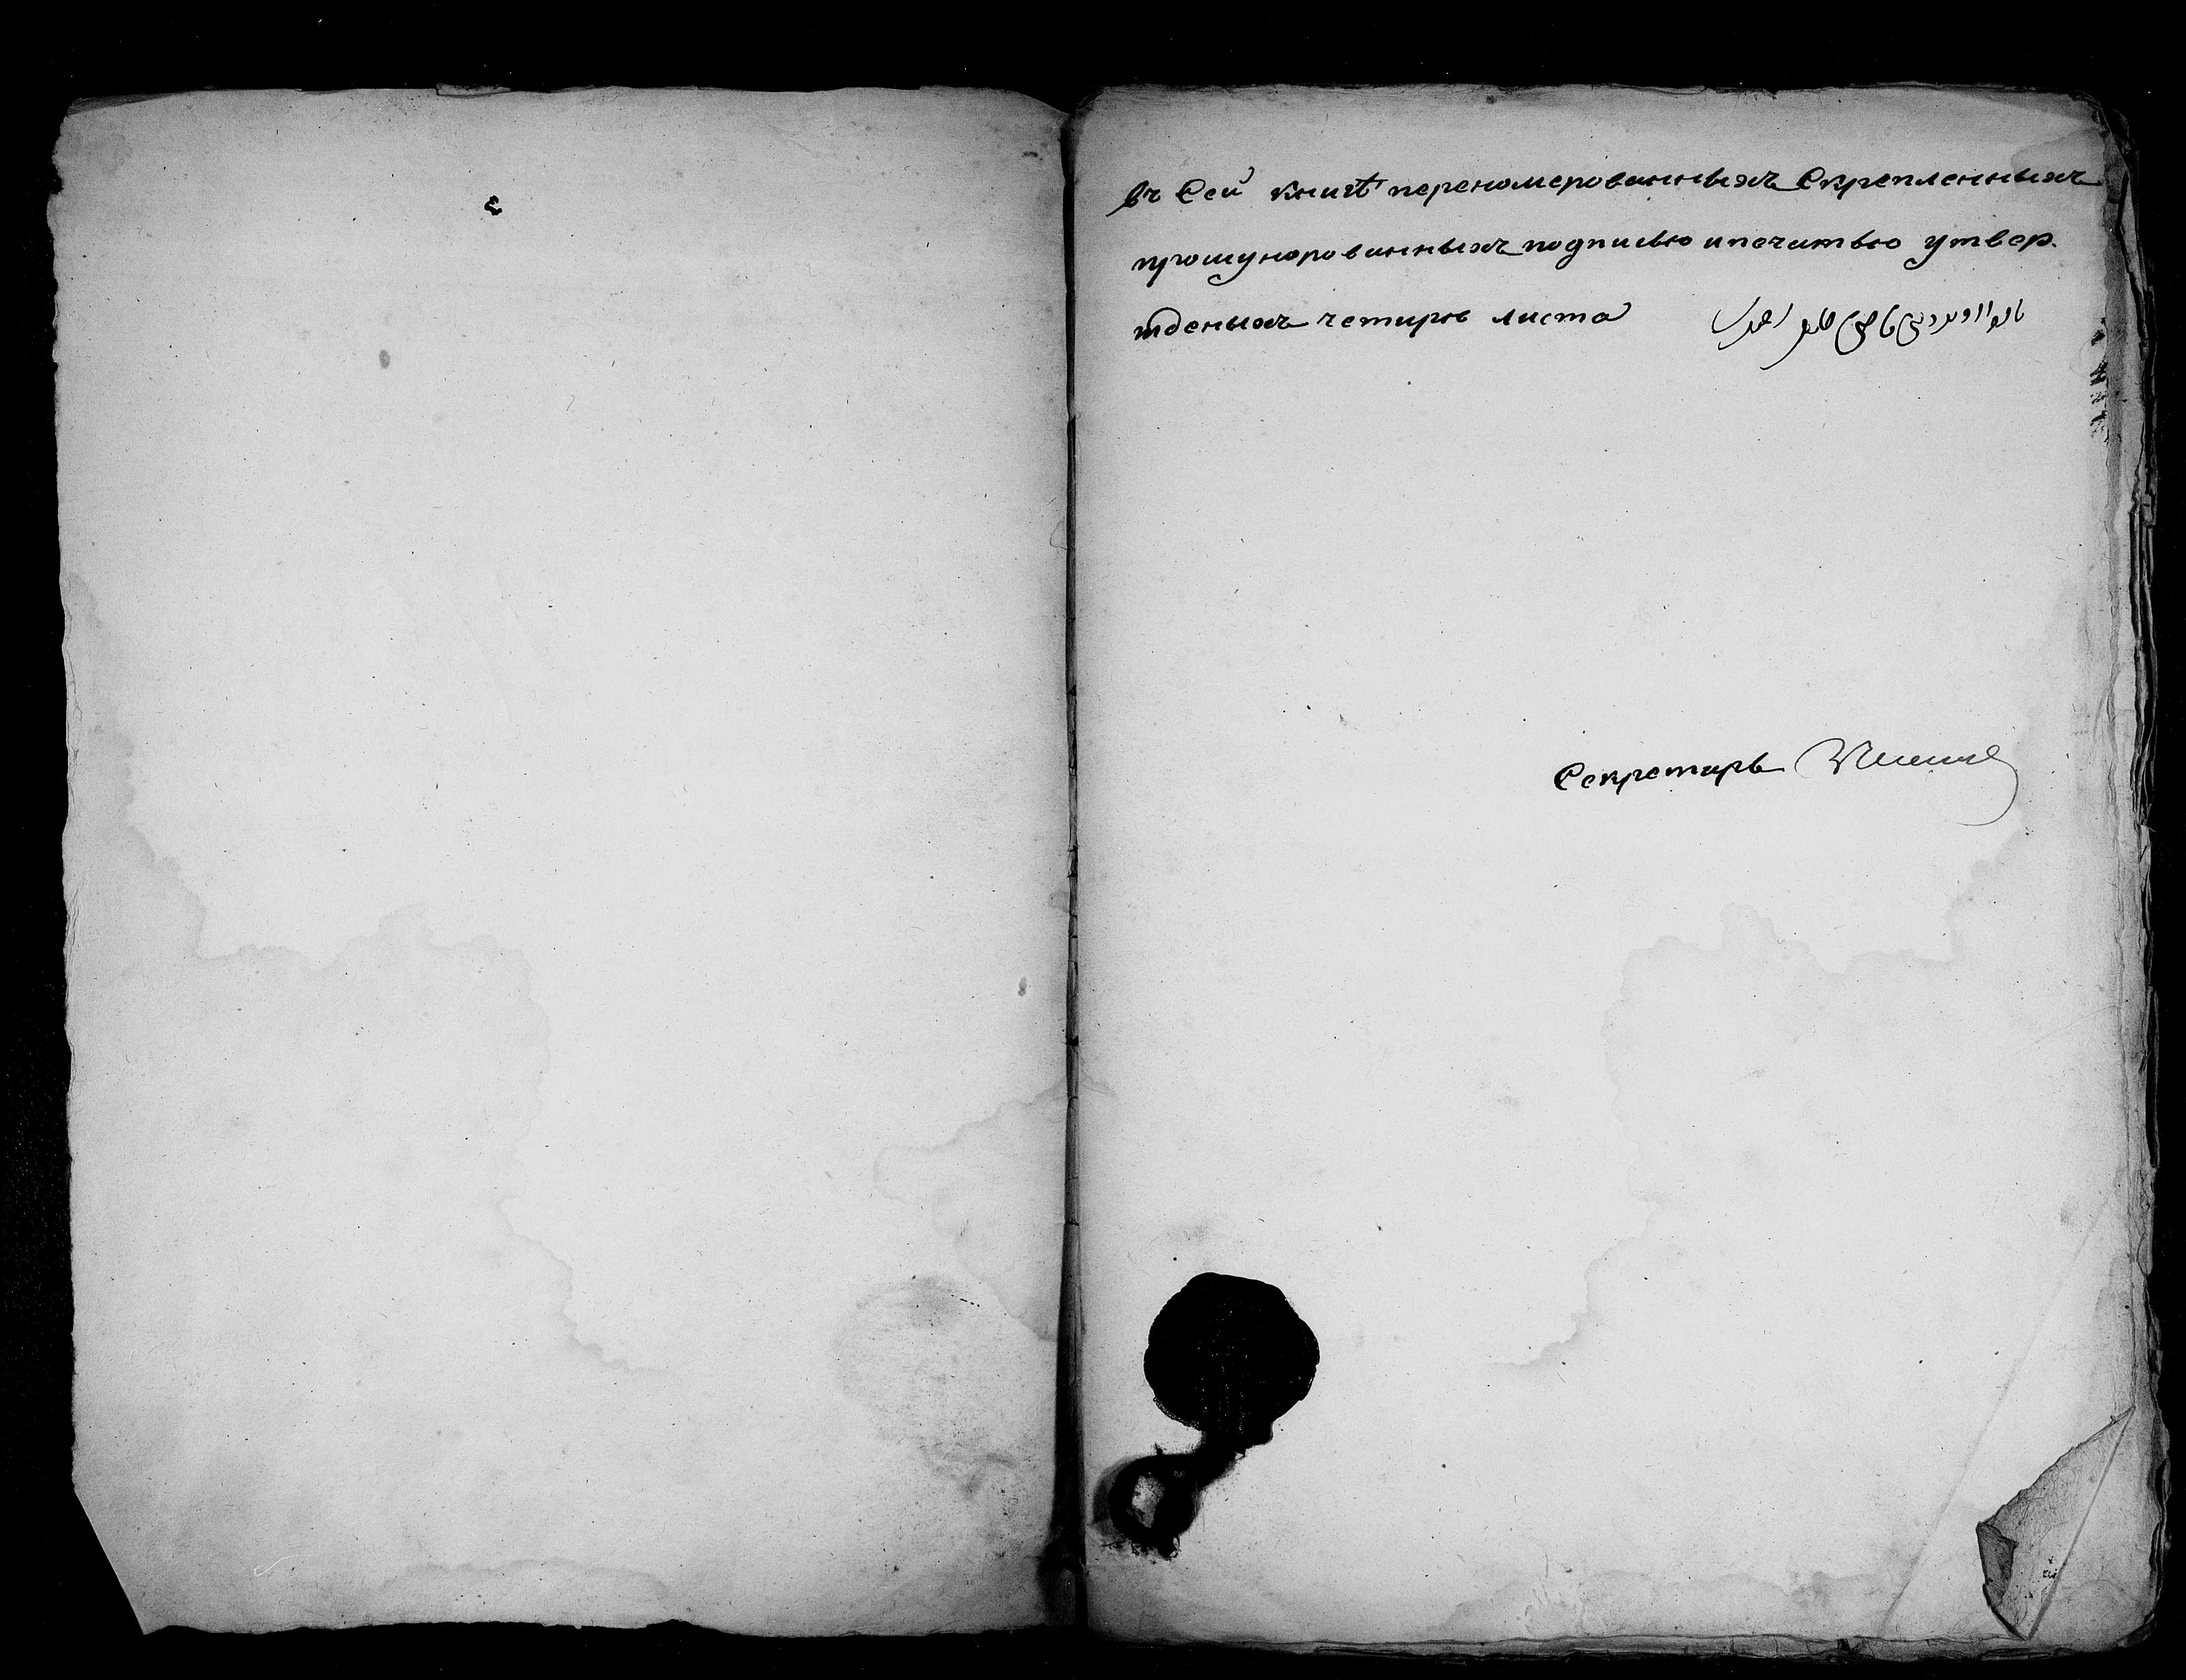 въ сей книгѣ переномерованныхъ скрепленныхъ
прошунорованныхъ подписью и печатью утвер.
жденыхъ четыре листа
Секретарь